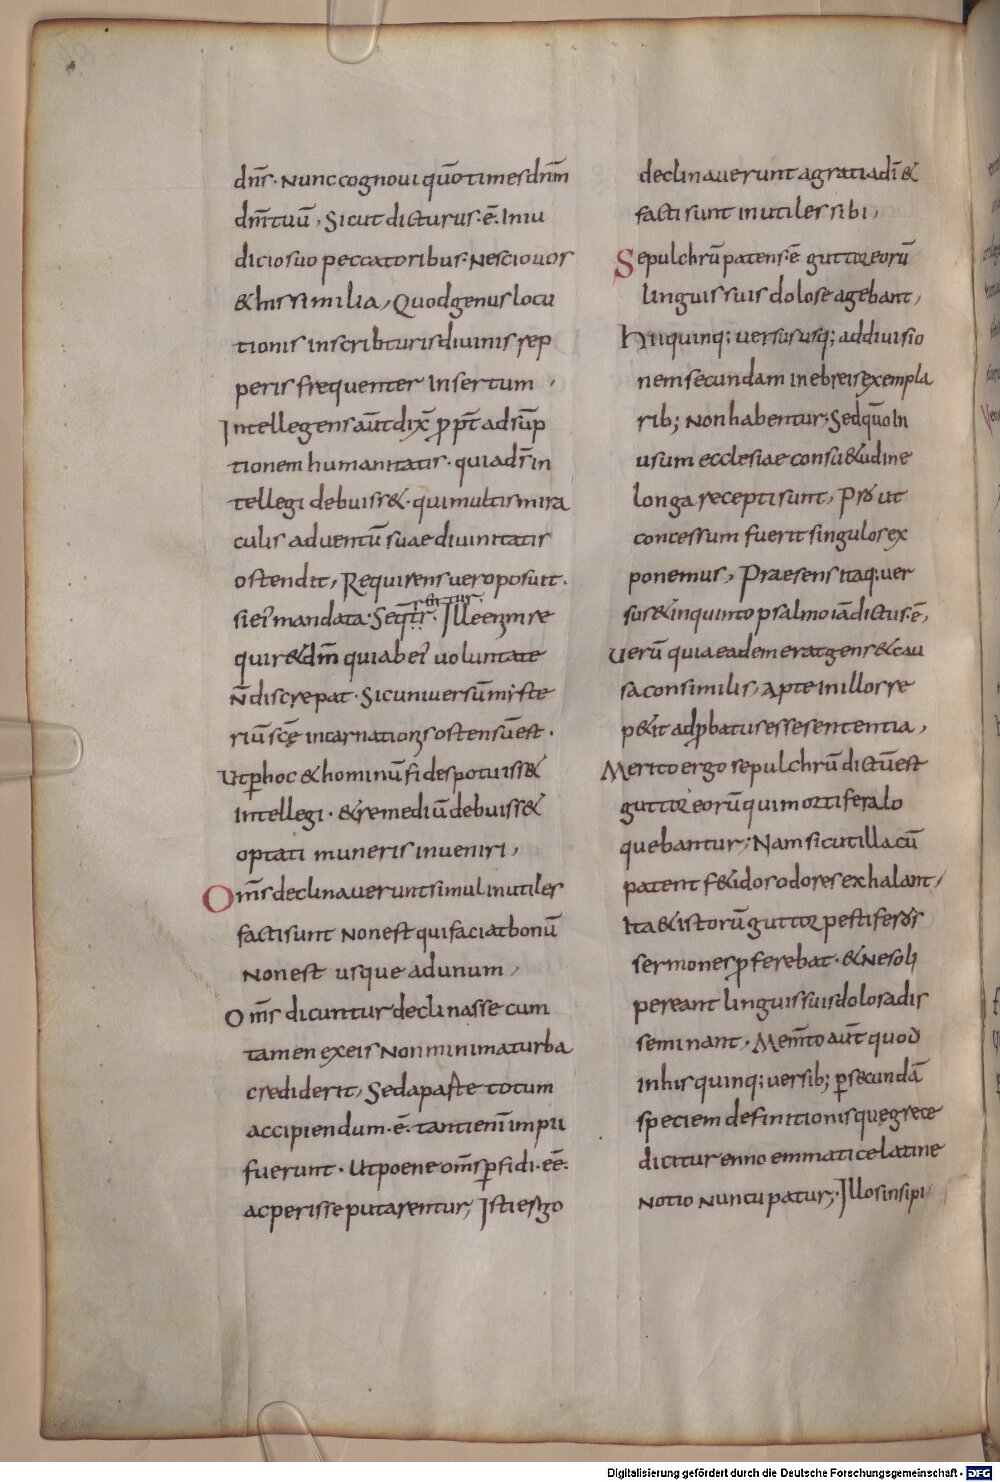 dn̄s· Nunc cognovi quō times dn̄m
dn̄m tuū, Sicut dicturus·ē· In iu
dicio suo peccatoribus· Nescio vos
& his similia, Quod genus locu
tionis in scribturis divinis rep
peris frequenter Insertum,
Intellegens aūt dix̄ ꝓpt̄ adsūp
tionem humanitatis· quia dn̄s in
tellegi debuiss&· qui multis mira
culis adventū suae divinitatis
ostendit, Requirens vero posuit·
si ei' mandata· Seqt̄r· Ille enim re
quir& dm̄ qui ab ei' voluntate
n̄ discrepat· Sic universū myste
riū scę incarnationis ostensū est·
Ut ꝑ hoc & hominū fides potuiss&
Intellegi· & remediū debuiss&
optati muneris inveniri,
Om̄s declinaverunt simul inutiles
facti sunt Non est qui faciat bonū
Non est usque ad unum,
Om̄s dicuntur declinasse cum
tamen ex eis Non minima turba
crediderit, Sed a parte totum
accipiendum·ē· tanti enī impii
fuerunt· Ut poene om̄s ꝑfidi·eē·
ac perisse putarentur, Isti ergo
declinaverunt a gratia dī &
facti sunt inutiles sibi,
Sepulchrū patens·ē guttur eorū
linguis suis dolose agebant,
Hii quinq; versus usq; ad divisio
nem secundam in ebreis exempla
rib; Non habentur, Sed quō In
usum ecclesiae consu&udine
longa recepti sunt, Prout
concessum fuerit singulos ex
ponemus, Praesens itaq; ver
sus & in quinto psalmo iā dictus·ē,
Verū quia eadem erat gens & cau
sa consimilis, Apte in illos re
p&it adꝓbatus esse sententia,
Merito ergo sepulchrū dictū est
guttur eorū qui mortifera lo
quebantur; Nam sicut illa cū
patent f&idos odores exhalant,
Ita & istorū guttur pestiferos
sermones ꝓferebat· & Ne soli
pereant linguis suis dolos adis
seminant, Mem̄to aūt quod
in his quinq; versib; ꝑ secundā
speciem definitionis quę grece
dicitur ennoemmatice latine
Notio Nuncupatur; Illos insipi